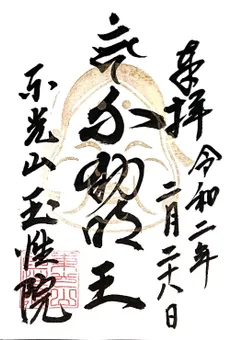 奉拝 令和二年
二月二十八日
不動明王
東光山 玉性院